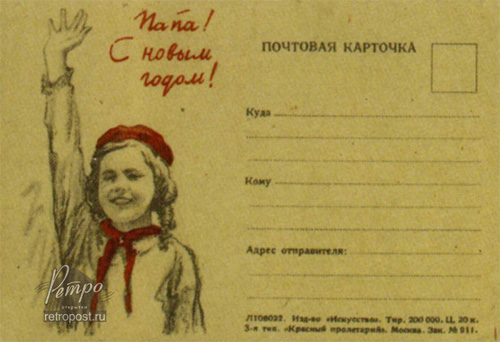 Папа!
С новым
годом!
ПОЧТОВАЯ КАРТОЧКА
Куда
Кому
Адрес отправителя:
Л108032. Изд-во «Искусство». Тир. 200 000. Ц. 20 к.
3-я тип. «Красный пролетарий». Москва. Зак. № 911.
Ретро
открытки
retropost.ru